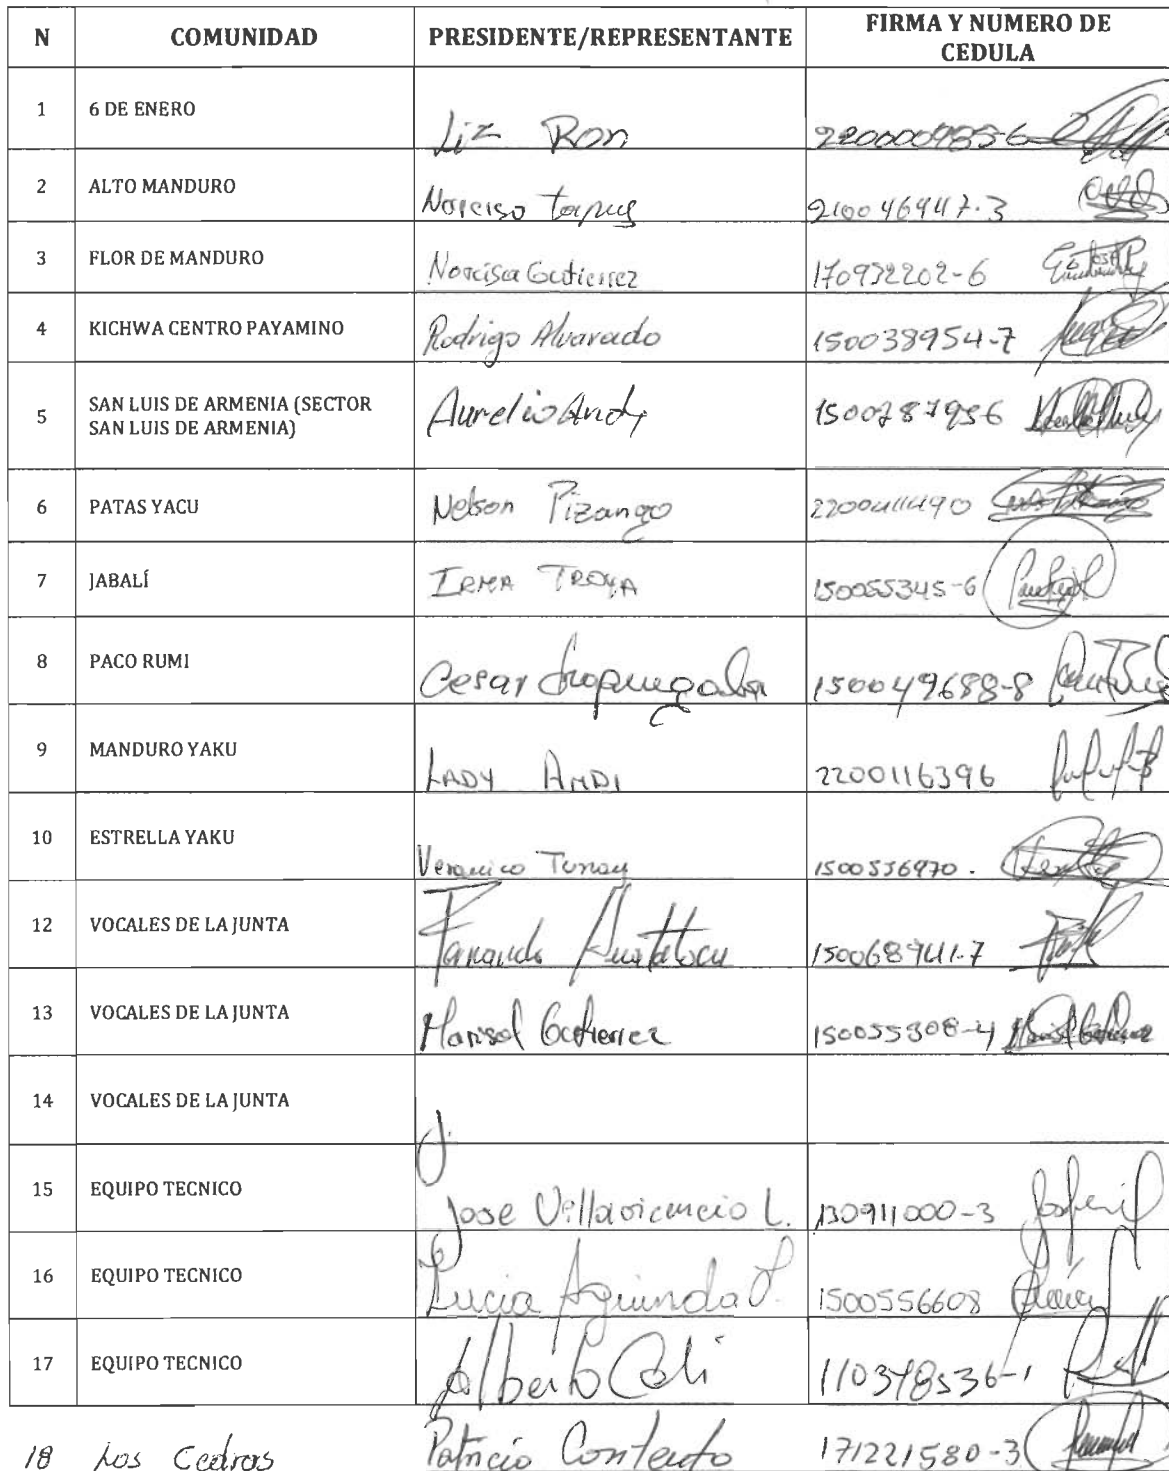 N COMUNIDAD PRESIDENTE/REPRESENTANTE FIRMA Y NUMERO DE CEDULA
1 6 DE ENERO Liz Ron
2 ALTO MANDURO 210046947-3
3 FLOR DE MANDURO Narcisa Gutierrez 170932202-6
4 KICHWA CENTRO PAYAMINO Rodrigo Alvarado 150038954-7
5 SAN LUIS DE ARMENIA (SECTOR SAN LUIS DE ARMENIA) Aurelio Andy
6 PATAS YACU Nelson Pizango 2200411490
7 JABALÍ IRMA TROYA 150055345-6
8 PACO RUMI Cesar 150049688-8
9 MANDURO YAKU LADY ANDI 2200116396
10 ESTRELLA YAKU 1500536970.
12 VOCALES DE LA JUNTA 150068941-7
13 VOCALES DE LA JUNTA Marisol Gutierrez 150055308-4
14 VOCALES DE LA JUNTA
15 EQUIPO TECNICO Jose Villavicencio L. 130911000-3
16 EQUIPO TECNICO Lucia Aguinda 1500556608
17 EQUIPO TECNICO Alberto Celi 110348536-1
18 Los Cedros Patricio Contento 171221580-3